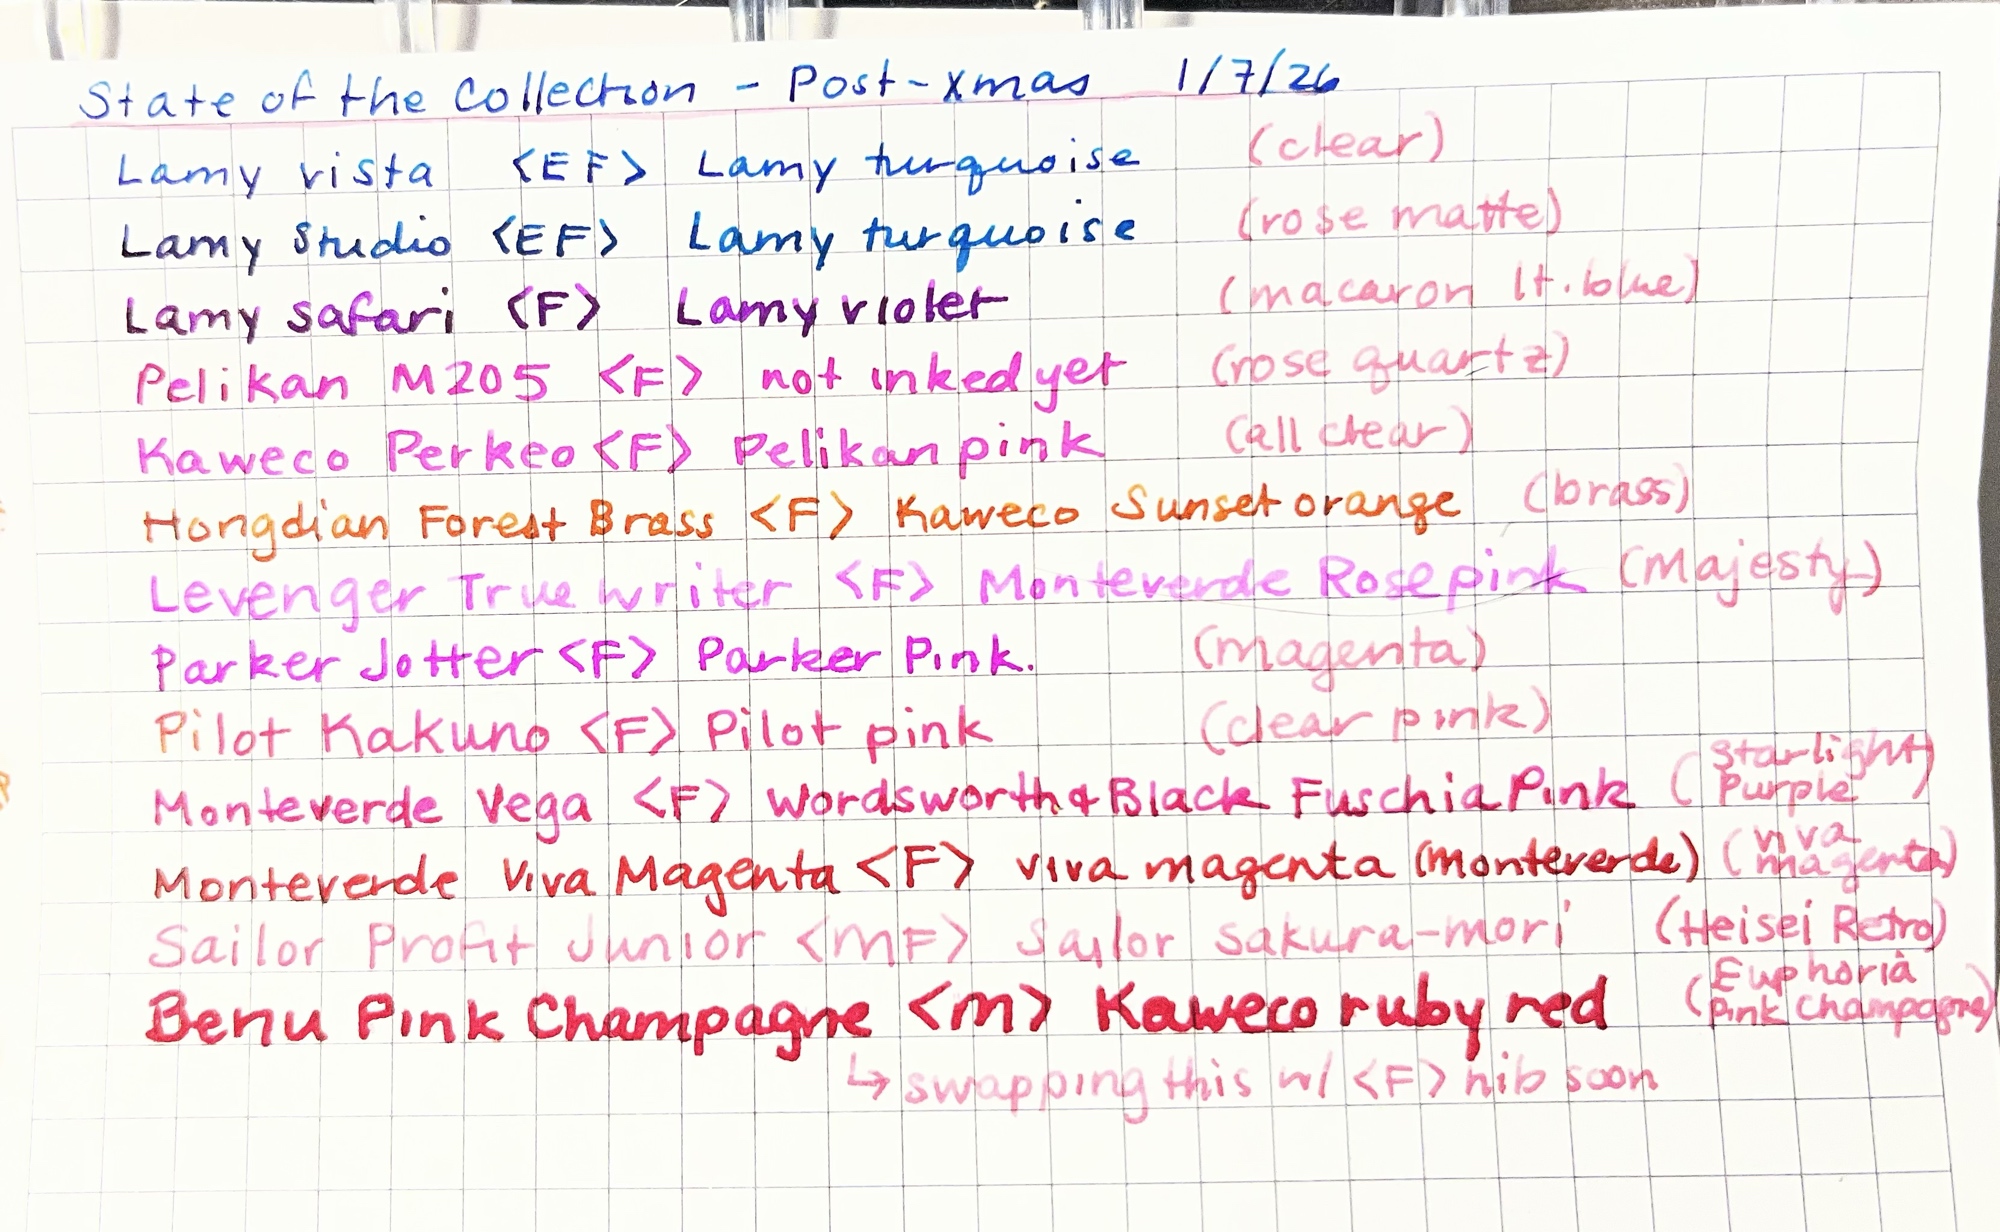 State of the Collection - Post-Xmas 1/7/26
Lamy vista <EF> Lamy turquoise (clear)
Lamy Studio <EF> Lamy turquoise (rose matte)
Lamy safari <F> Lamy violet (macaron lt. blue)
Pelikan M205 <F> not inked yet (rose quartz)
Kaweco Perkeo <F> Pelikan pink (all clear)
Hongdian Forest Brass <F> Kaweco Sunset orange (brass)
Levenger True Writer <F> Monteverde Rose pink (Majesty)
Parker Jotter <F> Parker Pink. (magenta)
Pilot Kakuno <F> Pilot pink (clear pink)
Monteverde Vega <F> Wordsworth & Black Fuschia Pink (Starlight Purple)
Monteverde Viva Magenta <F> viva magenta (monteverde) (viva magenta)
Sailor Profit Junior <MF> Sailor sakura-mori (Heisei Retro)
Benu Pink Champagne <M> Kaweco ruby red (Euphoria Pink Champagne)
↳ swapping this w/ <F> nib soon